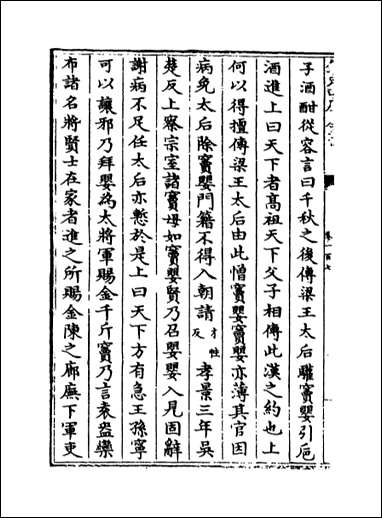 子酒酣從容言曰千秋之後傳梁王太后驩竇嬰引巵
酒進上曰天下者髙祖天下父子相傳此漢之約也上
何以得擅傳梁王太后由此憎竇嬰竇嬰亦薄其官因
病免太后除竇嬰門籍不得入朝請才性反孝景三年吳
楚反上察宗室諸竇毋如竇嬰賢乃召嬰嬰入見固辭
謝病不足任太后亦慙於是上曰天下方有急王孫寧
可以讓邪乃拜嬰為大將軍賜金千斤竇乃言袁盎欒
布諸名將賢士在家者進之所賜金陳之廊廡下軍吏